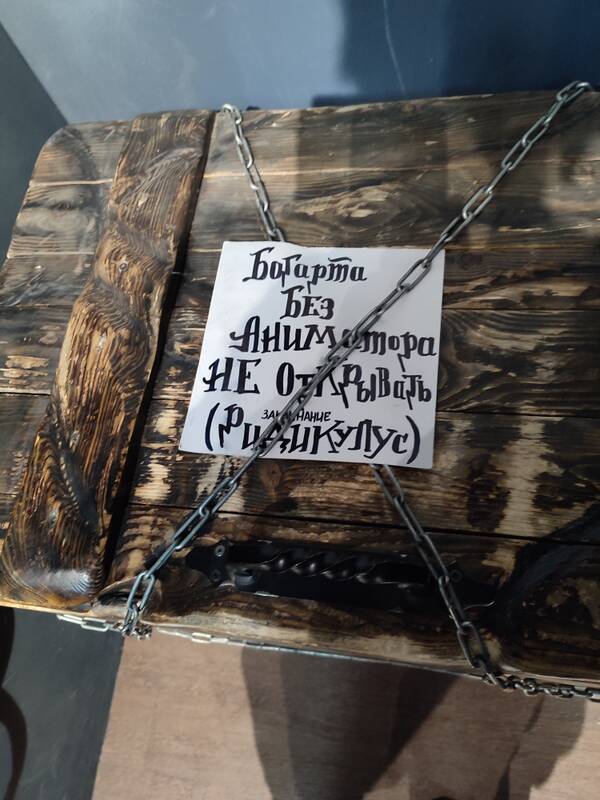 Богарта
Без
Аниматора
НЕ Открывать
заклинание
(Ридикулус)